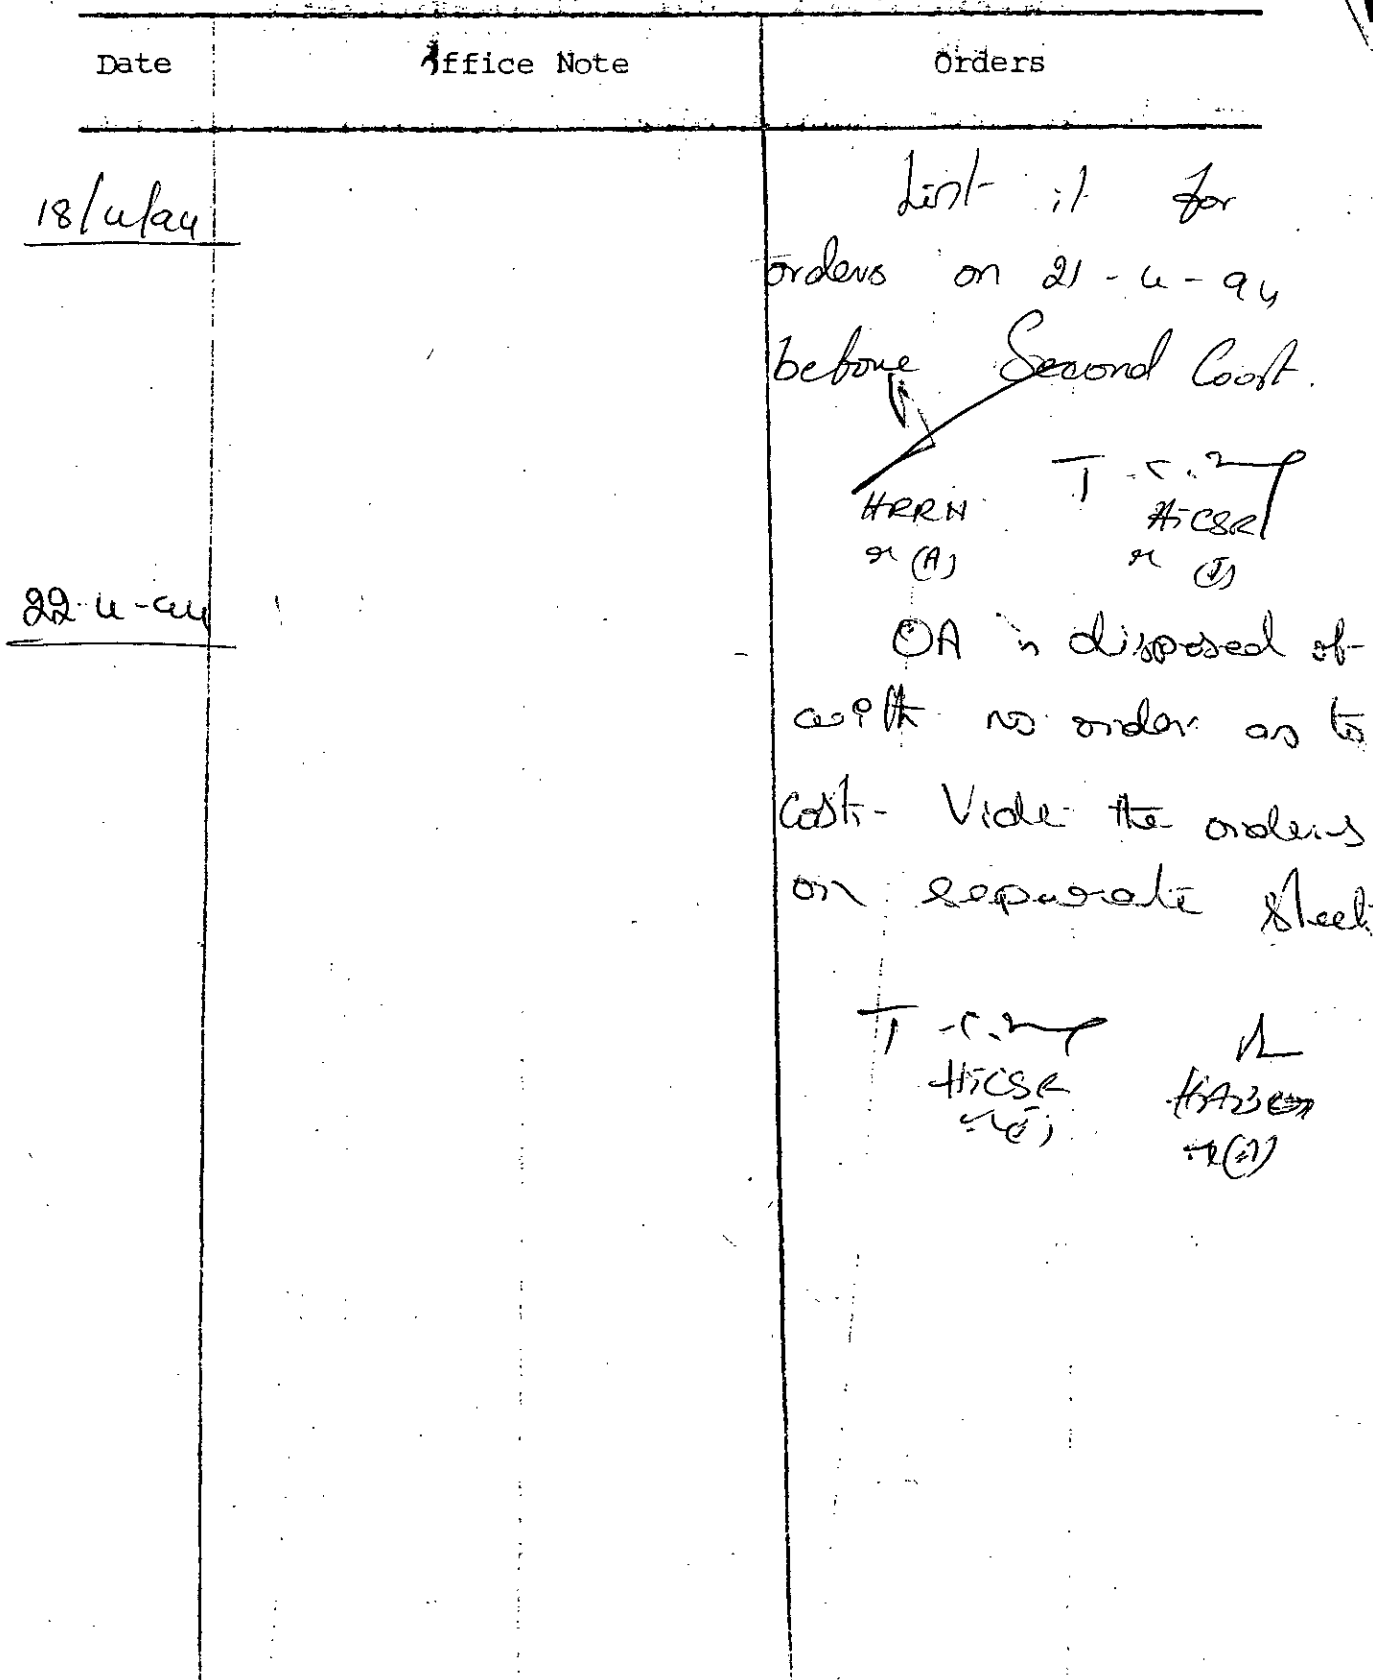 Date Office Note Orders
18/4/94
List it for
orders on 21-4-94
before Second Court.
HRRN HTCSR
M (A) M (J)
22-4-94
OA is disposed of
with no order as to
cost. Vide the orders
on separate sheet.
HTCSR
M(J)